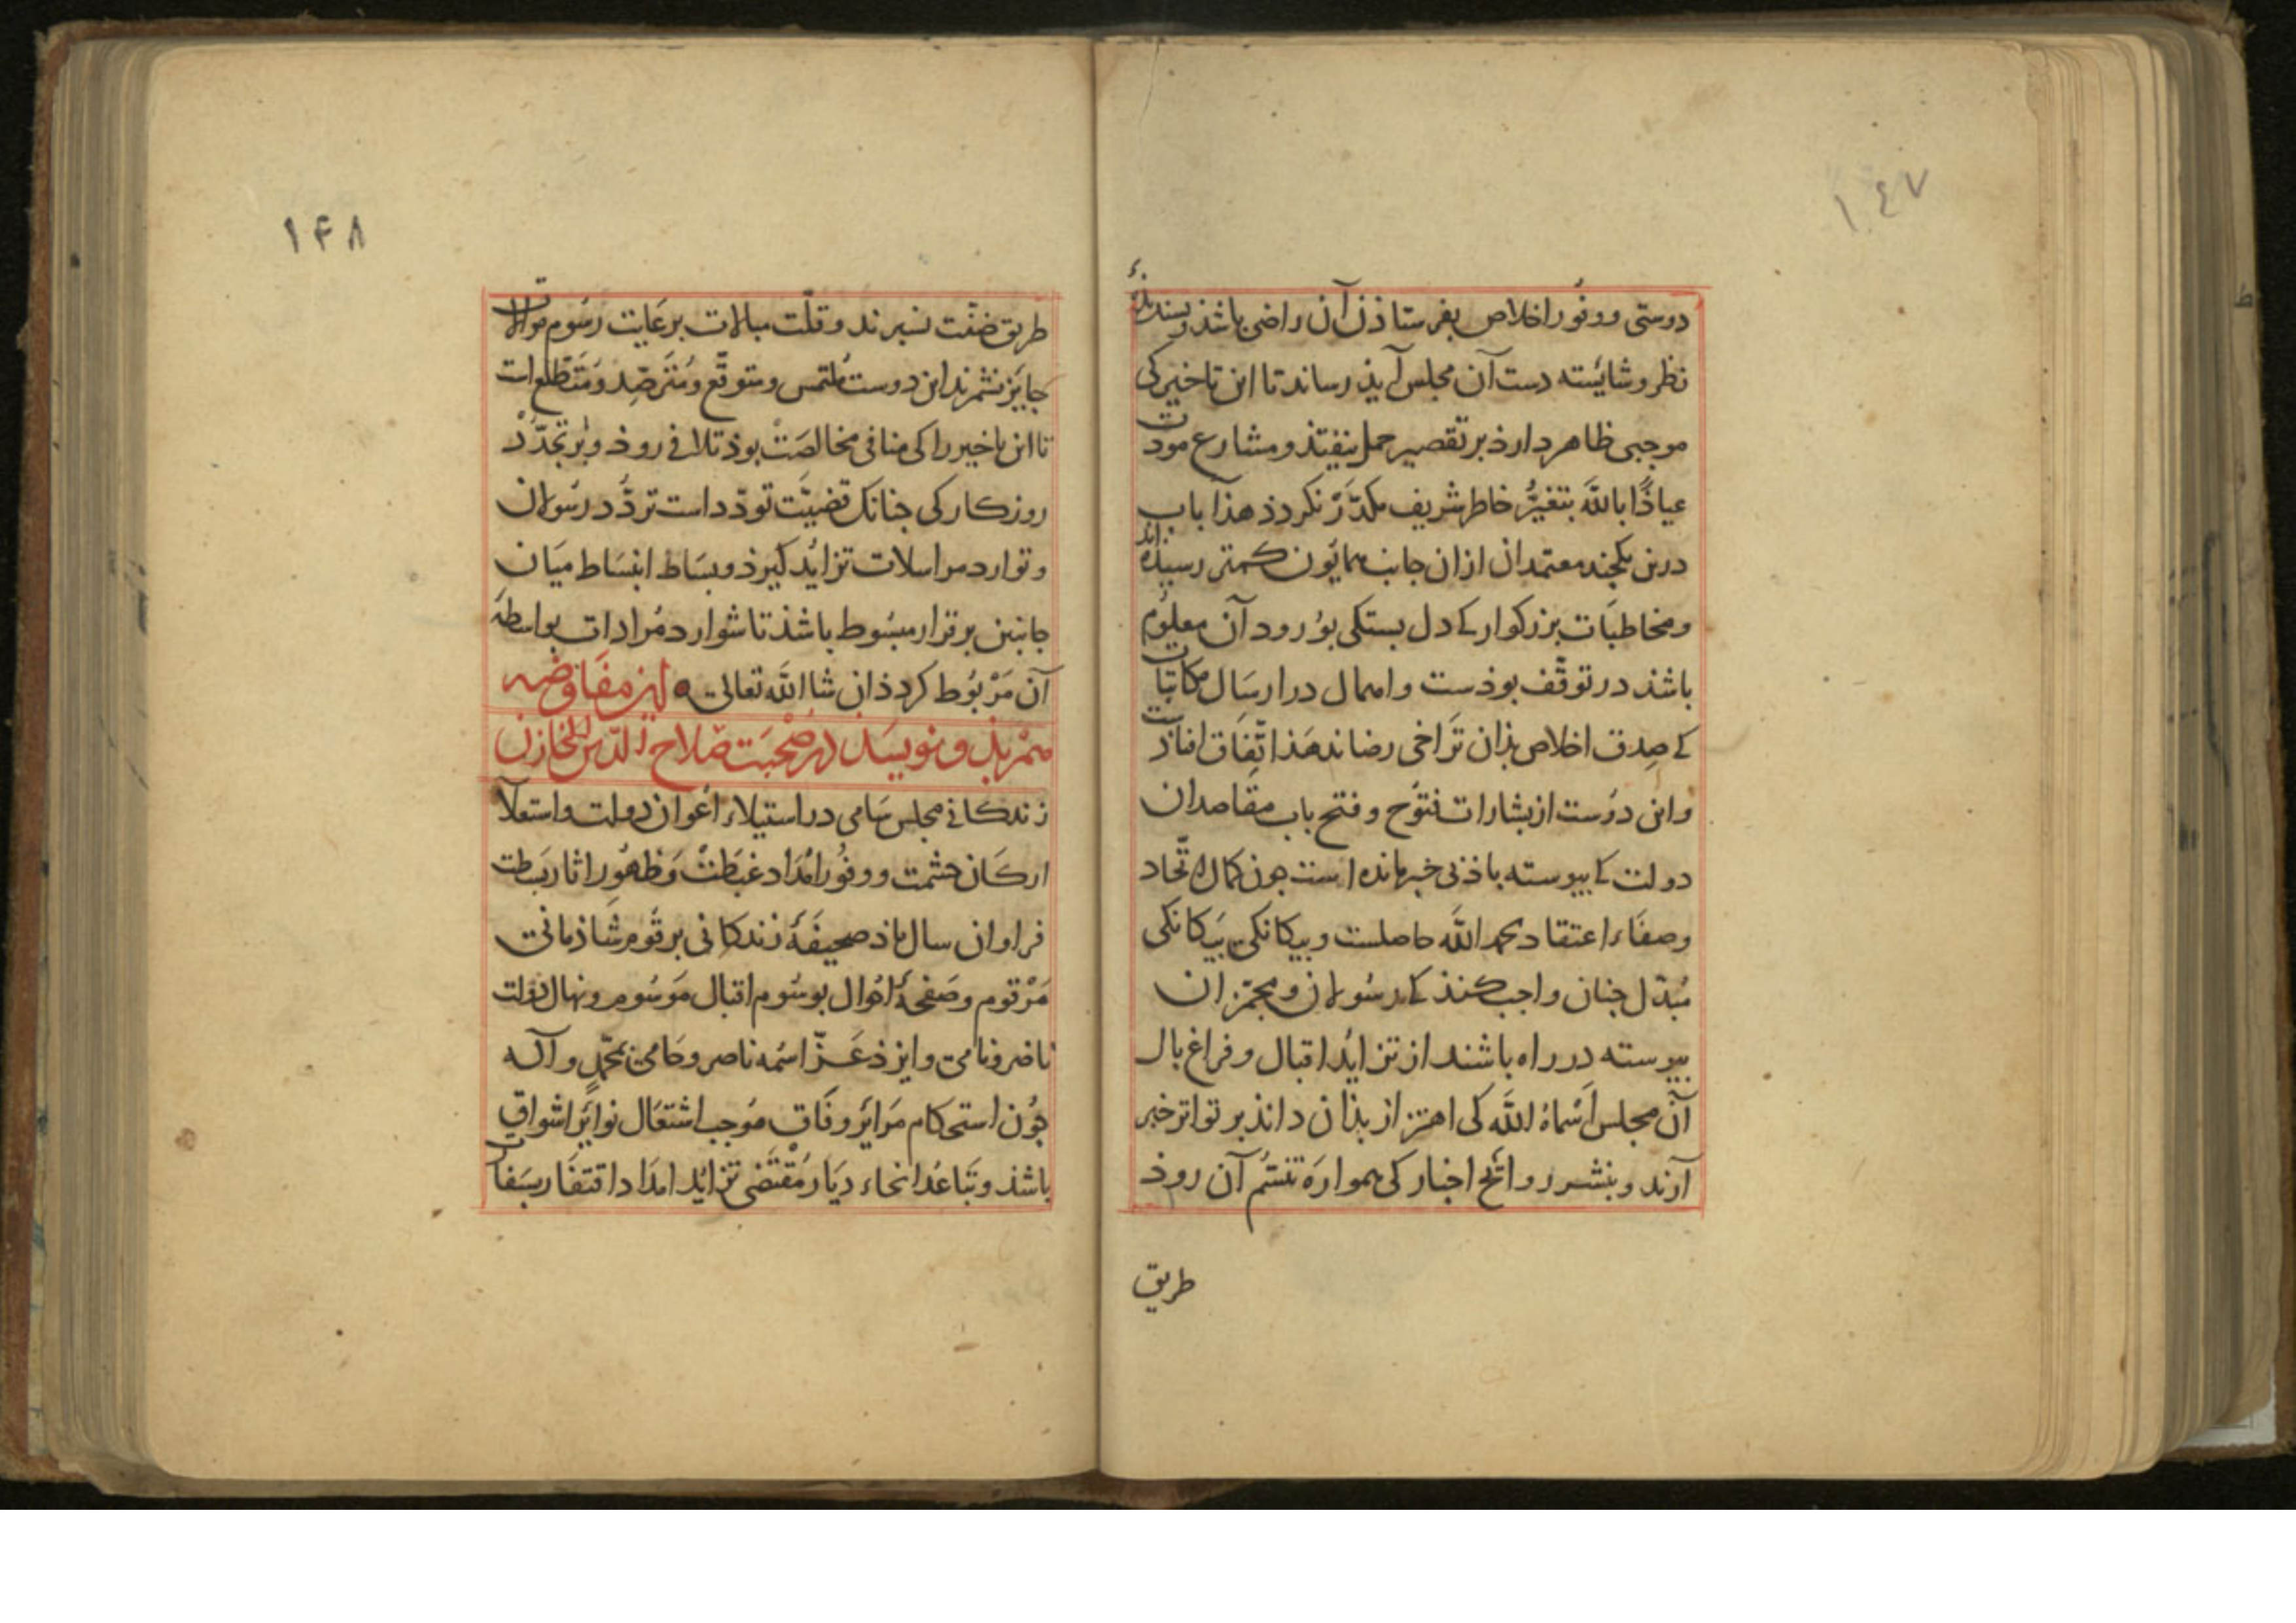 ١٤٧
دوستی و وفور اخلاص بفرستاذن آن راضی باشذ و بسندیذهٔ
نظر و شایسته دست آن مجلس آیذ رساند تا این تاخیر کی
موجبی ظاهر دارذ بر تقصیر حمل نیفتذ و مشارع مودت
عیاذًا بالله بتغیُّر خاطر شریف مکدَّر نکردذ هذا باب
درین یکجند معتمدان از ان جانب همایون کمتر رسیذه اند
و مخاطبات بزرکوار کے دل بستکی بوُرود آن معلوُم
باشذ در توقّف بوذست و اهمال در ارسَال مکاتبات
کے صِدق اخلاص بذان تَراخی رضا ندهَذ اتّفاق افتاذست
و این دوست از بشارات فتوُح و فتح باب مقاصد ان
دولت کے بیوسته باذ بی خبر مانده است جون کمال اتّحاد
و صفاء اعتقاد بحمد الله حاصلست و بیکانکی بیَکانکی
مُبدّل جنان واجب کنذ کے رسُولان و مجمّزان
بیوسته در راه باشند از تزایُد اقبال و فراغ بال
آن مجلس اَسْماهُ الله کی اهتزاز بذان داند بر تواتر خبر
آرند و بنشر روائح اخبار کی همواره تنسّم آن روذ
طریق
١۴٨
طریق ضنّت نسبرند و قلّت مبالات برعَایت رسُوم موالات
جایَز نشمرند این دوست مُلتمس و متوقّع و مُترَصِّد و مُتَطلّع است
تا این تاخیر را کی منافی مخالصَتْ بوذ تلافی روذ و بر تجَدّدْ
روزکار کی جنانک قضیّت تودّد است تردُّد رسُولان
و توارد مراسلات تزایُد کیرذ و بسَاط انبسَاط میَان
جانبین برقرار مبسُوط باشذ تا شوارد مُرادات بواسطهَ
آن مَرْبوُط کردذ ان شا الله تعالی این مفَاوضه
همزیذ و نویسَذ در صُحْبَت صَلاح الدّین الخازن
زندکانی مجلس سَامی در استیلاء اَعوان دولت و استعلا
ارکَان حشمت و وفُور اَمْدَاد غبَطَتْ وَ ظهُور اثار بَسطت
فراوان سال باذ صحیفَهٔ زندکانی برقُوم شاذمانی
مَرْقوم و صَفحهٔ اَحوال بوسُوم اقبال مَوسُوم و نهال دولت
ناضر و نامی و ایزذ عَزّ اسْمُه ناصر و حَامی بمحمّدٍ و آلہ
جوُن استحکام مَرائر وفَاق مُوجب اشتعَال نوایر اشواق
باشذ و تَبَاعُد انحاء دیَار مُقتَضی تزایُد امدَاد افتقَار بسَفارت